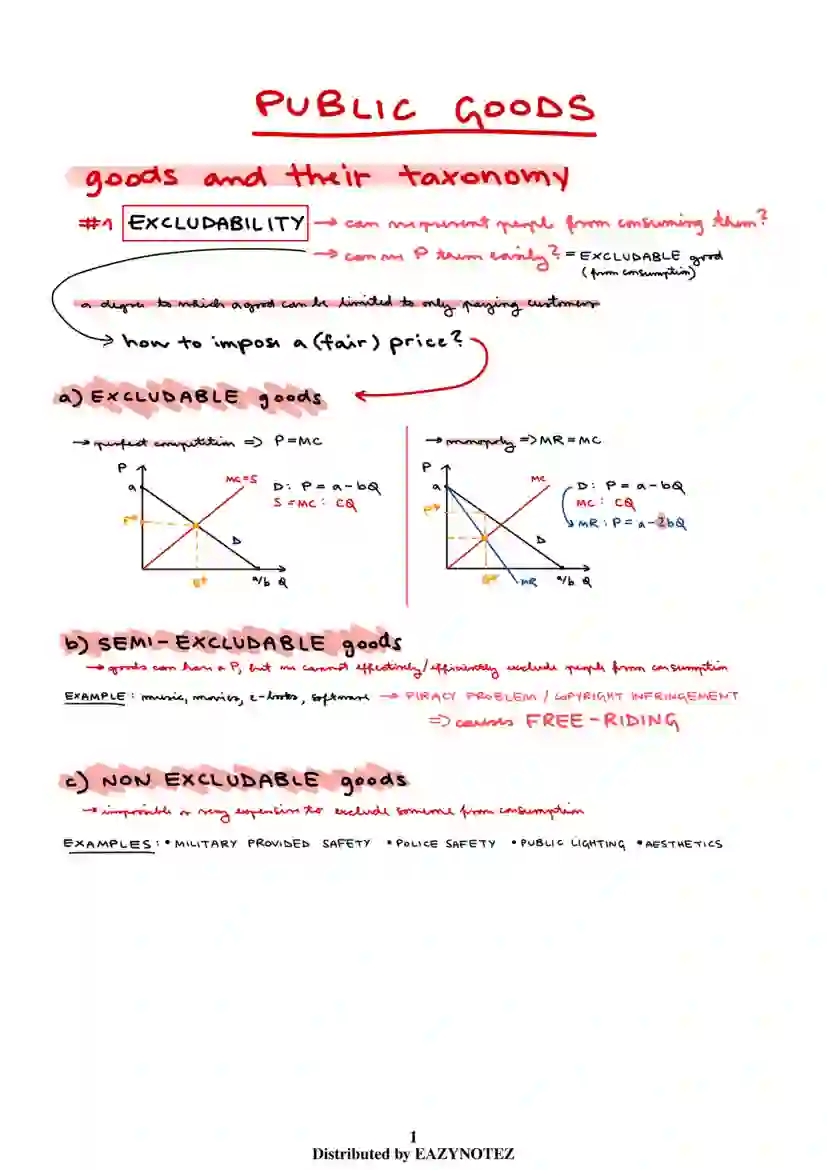 PUBLIC GOODS
goods and their taxonomy
#1 EXCLUDABILITY → can we prevent people from consuming them?
→ can we P them easily? = EXCLUDABLE good
(from consumption)
a degree to which a good can be limited to only paying customers
→ how to impose a (fair) price?
a) EXCLUDABLE goods
→ perfect competition => P=MC
P
a
MC=S
D: P = a-bQ
S=MC: CQ
P*
D
Q*
a/b
Q
→ monopoly => MR = MC
P
a
MC
D: P = a-bQ
MC: CQ
MR: P = a-2bQ
P*
D
Q*
MR
a/b
Q
b) SEMI-EXCLUDABLE goods
→ goods can have a P, but we cannot effectively/efficiently exclude people from consumption
EXAMPLE: music, movies, e-books, software → PIRACY PROBLEM / COPYRIGHT INFRINGEMENT
=> causes FREE-RIDING
c) NON EXCLUDABLE goods
→ impossible or very expensive to exclude someone from consumption
EXAMPLES: • MILITARY PROVIDED SAFETY • POLICE SAFETY • PUBLIC LIGHTING • AESTHETICS
1
Distributed by EAZYNOTEZ